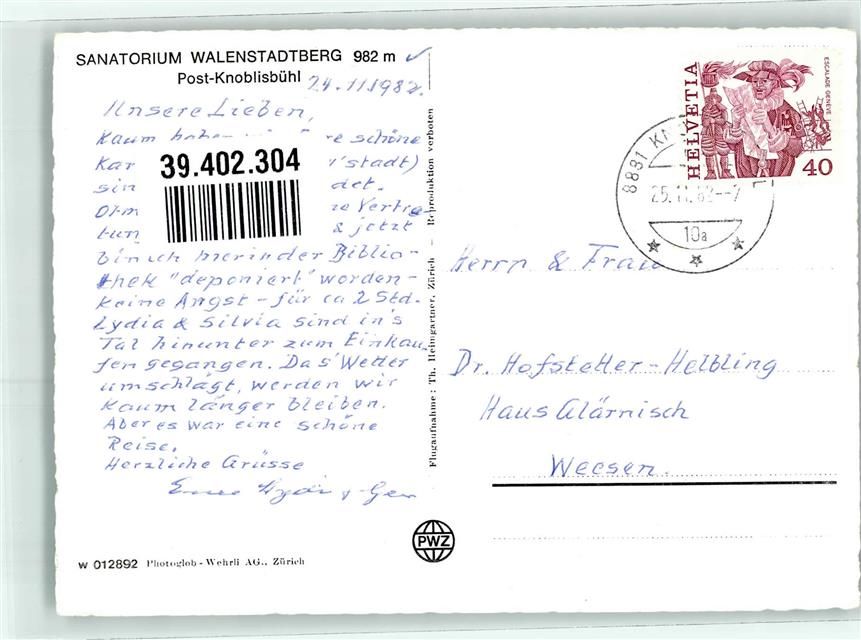 SANATORIUM WALENSTADTBERG 982 m
Post-Knoblisbühl
24.11.1982.
Unsere Lieben,
Kaum habe schöne
Kar 'stadt)
sin det.
39.402.304
& jetzt
bin ich hier in der Biblio-
thek "deponiert" worden-
Keine Angst - für ca 2 Std.
Lydia & Silvia sind in's
Tal hinunter zum Einkau-
fen gegangen. Da s'Wetter
umschlägt, werden wir
kaum länger bleiben.
Aber es war eine schöne
Reise.
Herzliche Grüsse
w 012892 Photoglob-Wehrli AG., Zürich
Flugaufnahme: Th. Heimgartner, Zürich – Reproduktion verboten
PWZ
HELVETIA
ESCALADE GENÈVE
40
8881 KN
10a
Herrn & Frau
Dr. Hofstetter-Helbling
Haus Glärnisch
Weesen.